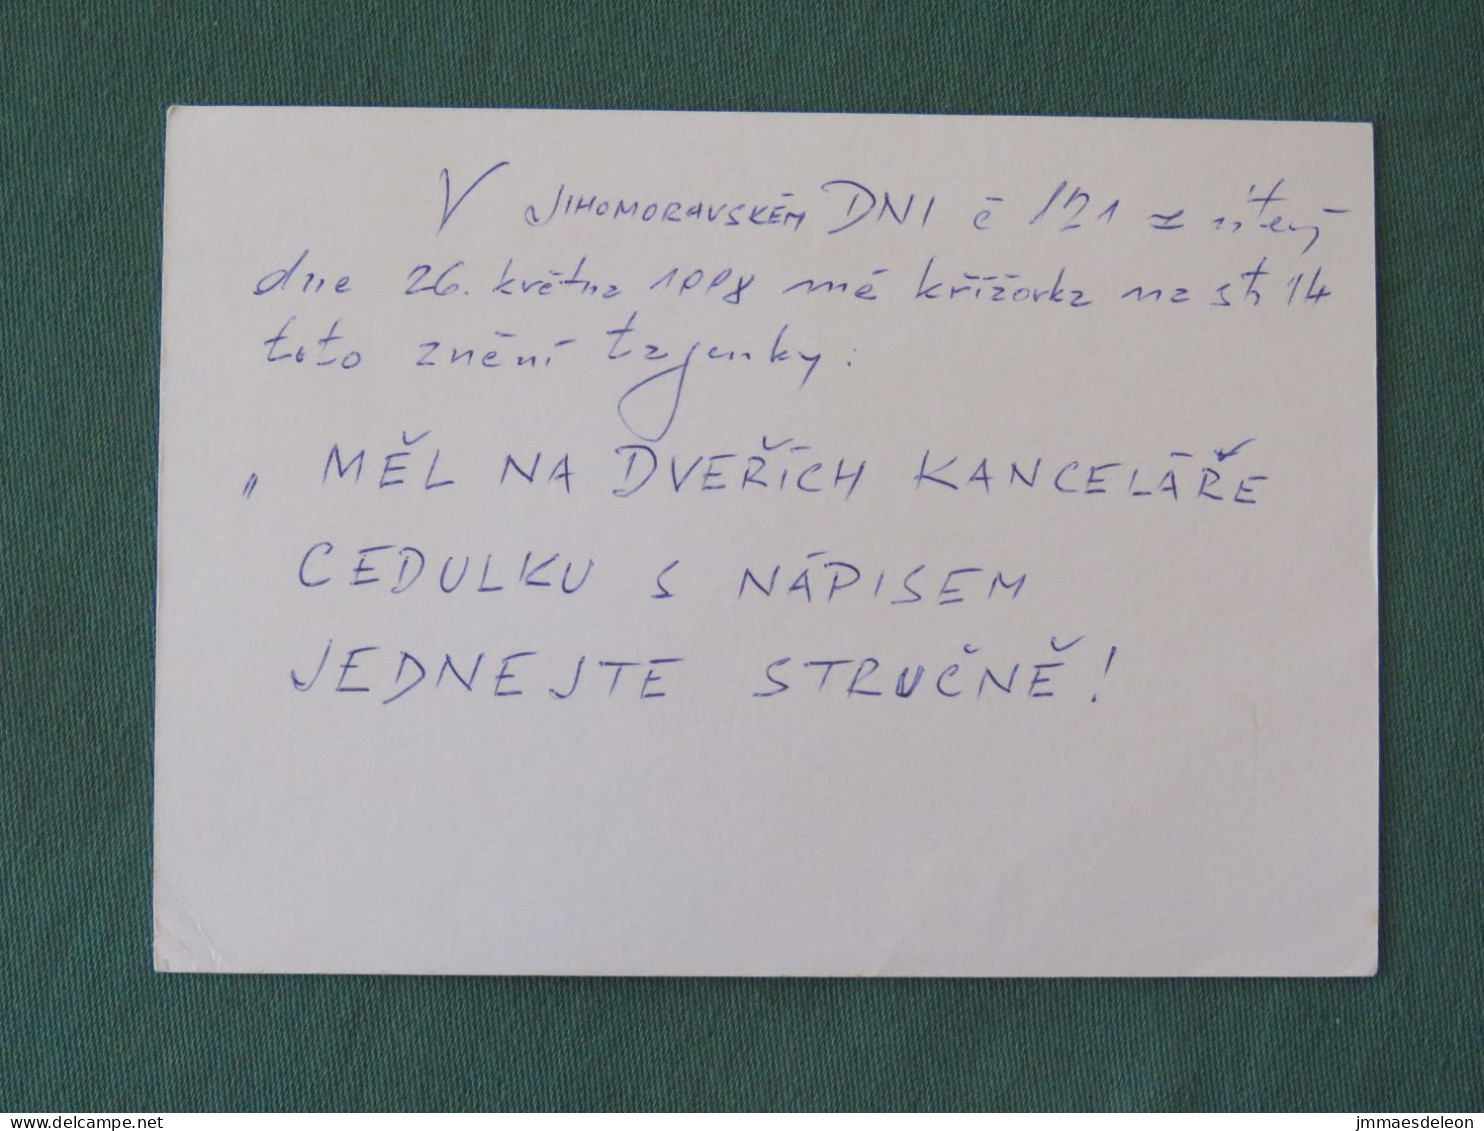 V JIHOMORAVSKÉM DNI č 121 z úterý
dne 26. května 1998 má křížovka na str 14
toto znění tajenky:
„ MĚL NA DVEŘÍCH KANCELÁŘE
CEDULKU S NÁPISEM
JEDNEJTE STRUČNĚ!
www.delcampe.net
jmmaesdeleon